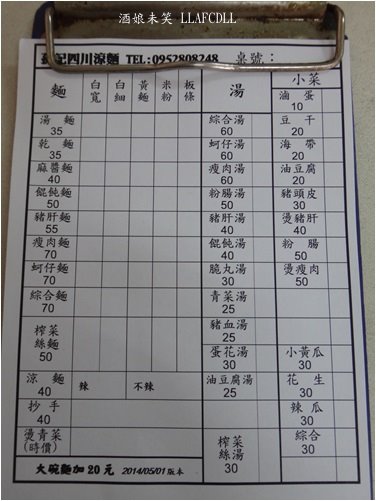 酒娘未笑 LLAFCDLL
記四川涼麵 TEL:0952808248 桌號：
麵 白寬 白細 黃麵 米粉 板條 湯 小菜
滷蛋 10
湯麵 35 綜合湯 60 豆干 20
乾麵 35 蚵仔湯 60 海帶 20
麻醬麵 40 瘦肉湯 60 油豆腐 20
餛飩麵 50 粉腸湯 50 豬頭皮 30
豬肝麵 55 豬肝湯 40 燙豬肝 40
瘦肉麵 70 餛飩湯 40 粉腸 50
蚵仔麵 70 脆丸湯 30 燙瘦肉 50
綜合麵 70 青菜湯 25
榨菜絲麵 50 豬血湯 25
蛋花湯 30 小黃瓜 30
涼麵 40 辣 不辣 油豆腐湯 25 花生 30
抄手 40 辣瓜 30
燙青菜 (時價) 榨菜絲湯 30 綜合 30
大碗麵加20元 2014/05/01版本